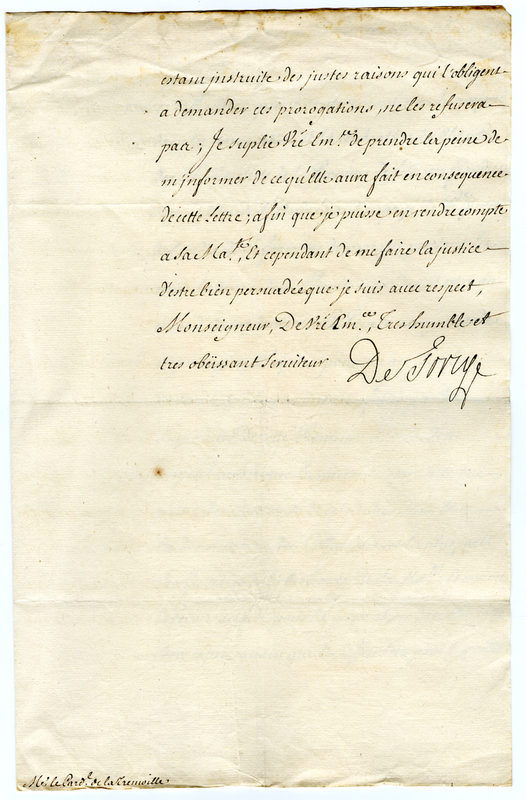 estant instruite des justes raisons qui l'obligent
a demander ces prorogations, ne les refusera
pas; Je suplie Vré Em.ce de prendre la peine de
m'jnformer de ce qu'Elle aura fait en consequence
de cette lettre; afin que je puisse en rendre compte
a sa Ma.té, Et cependant de me faire la justice
d'estre bien persuadée que je suis avec respect,
Monseigneur, De Vré Em.ce, Tres humble et
tres obëissant serviteur De Torcy
Mr. le Card.l de la Tremoille.